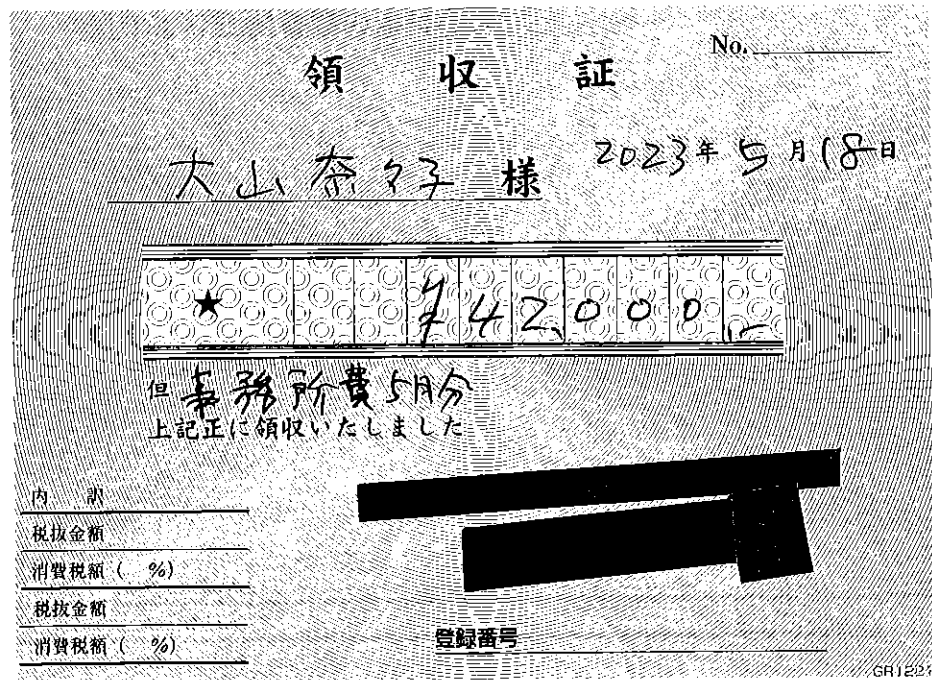 No.
領 収 証
大山奈々子 様
2023年5月18日
★ ¥42,000.-
但 事務所費5月分
上記正に領収いたしました
内 訳
税抜金額
消費税額( %)
税抜金額
消費税額( %)
登録番号